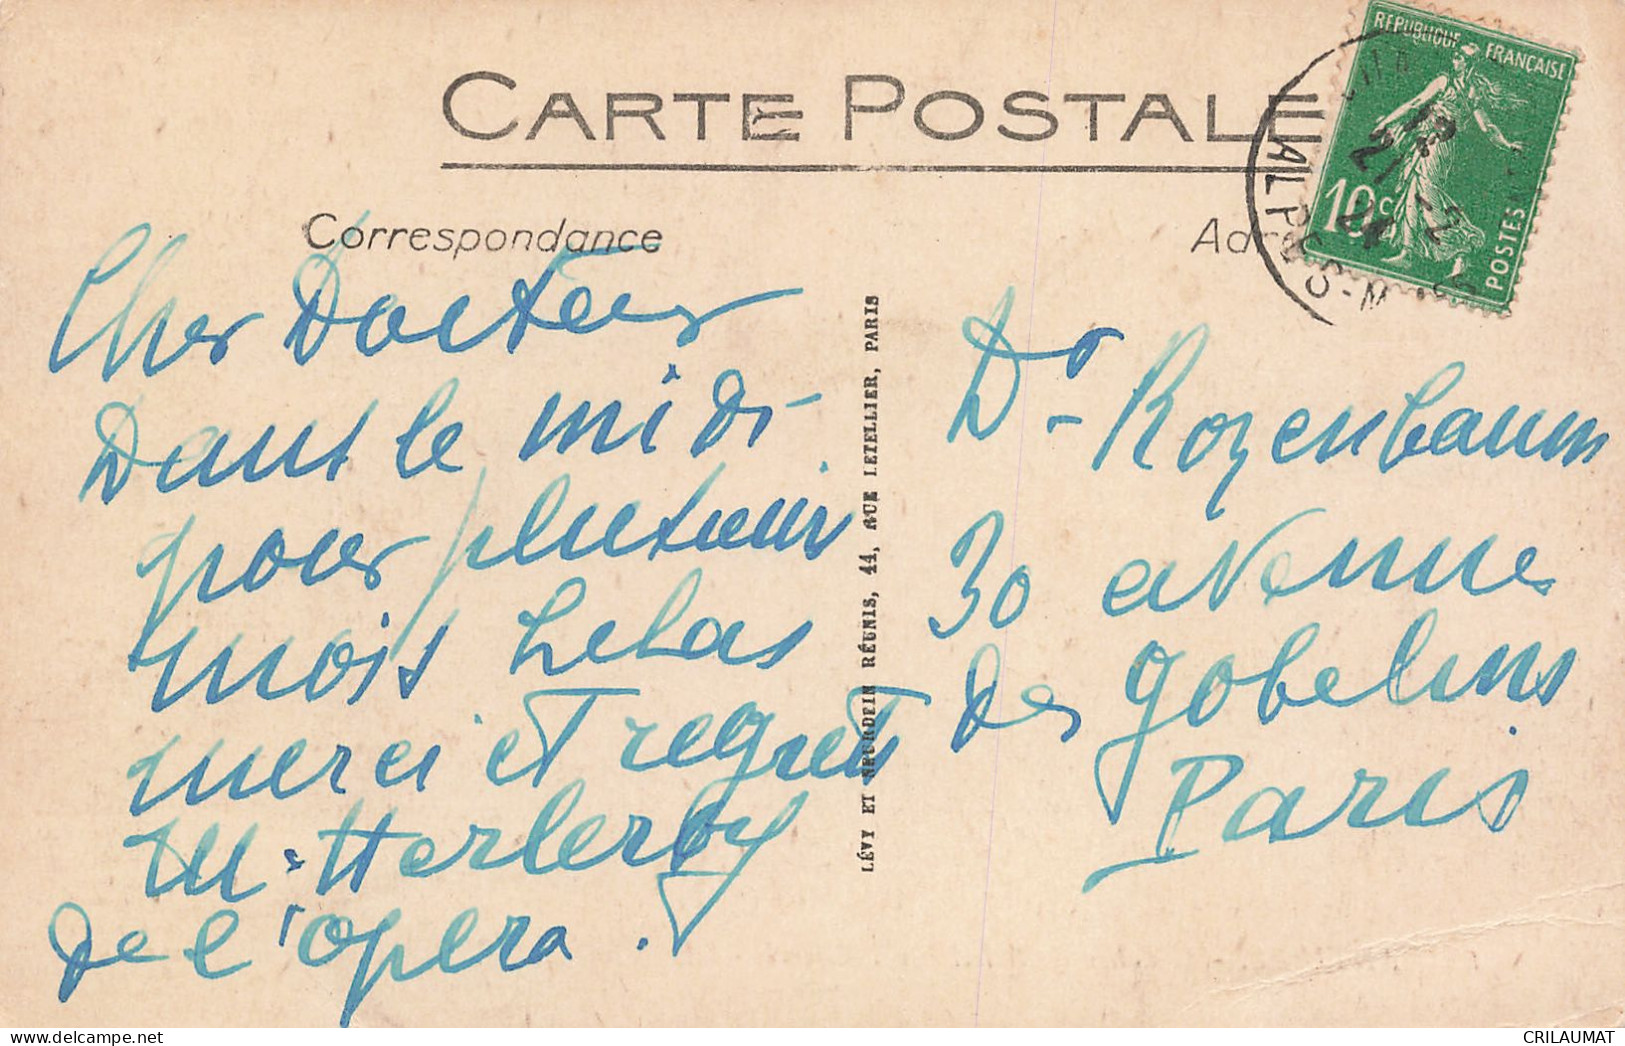 CARTE POSTALE
Correspondance
Cher Docteur
Dans le midi
pour plusieurs
mois helas
merci et regrets
M.
de l'opera.
LÉVY ET NEURDEIN RÉUNIS, 44, RUE LETELLIER, PARIS
REPUBLIQUE FRANÇAISE
10c
POSTES
ALPES-M
Dr Rozenbaum
30 avenue
des gobelins
Paris
CRILAUMAT